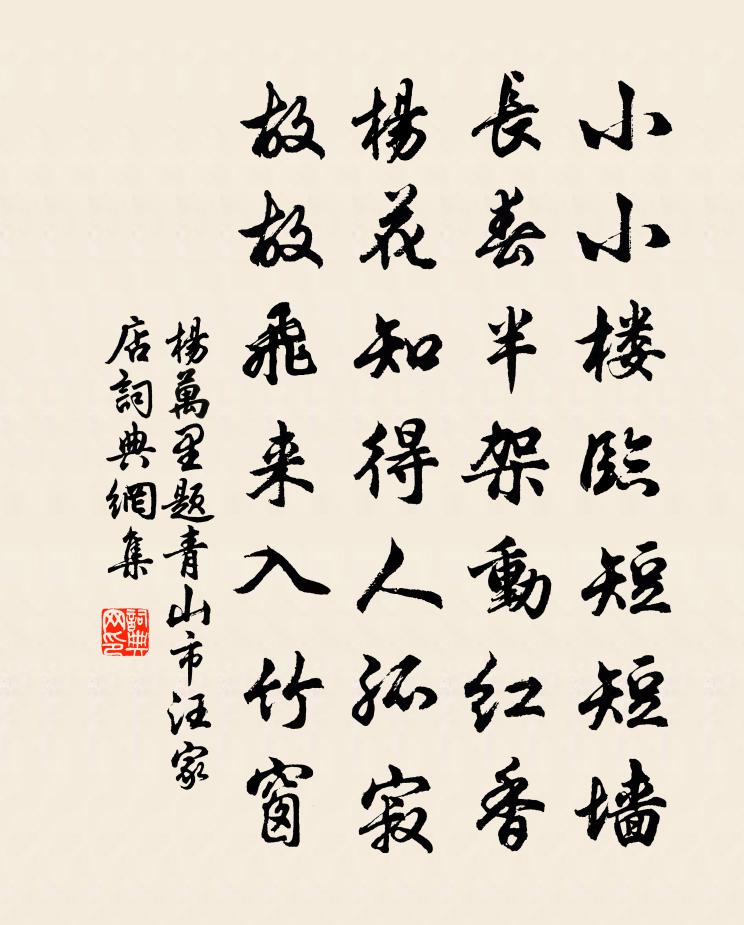 小小楼臨短短墙
長春半架動红香
楊花知得人孤寂
故故飛来入竹窗
楊萬里题青山市汪家
店詞典網集
詞典
网印